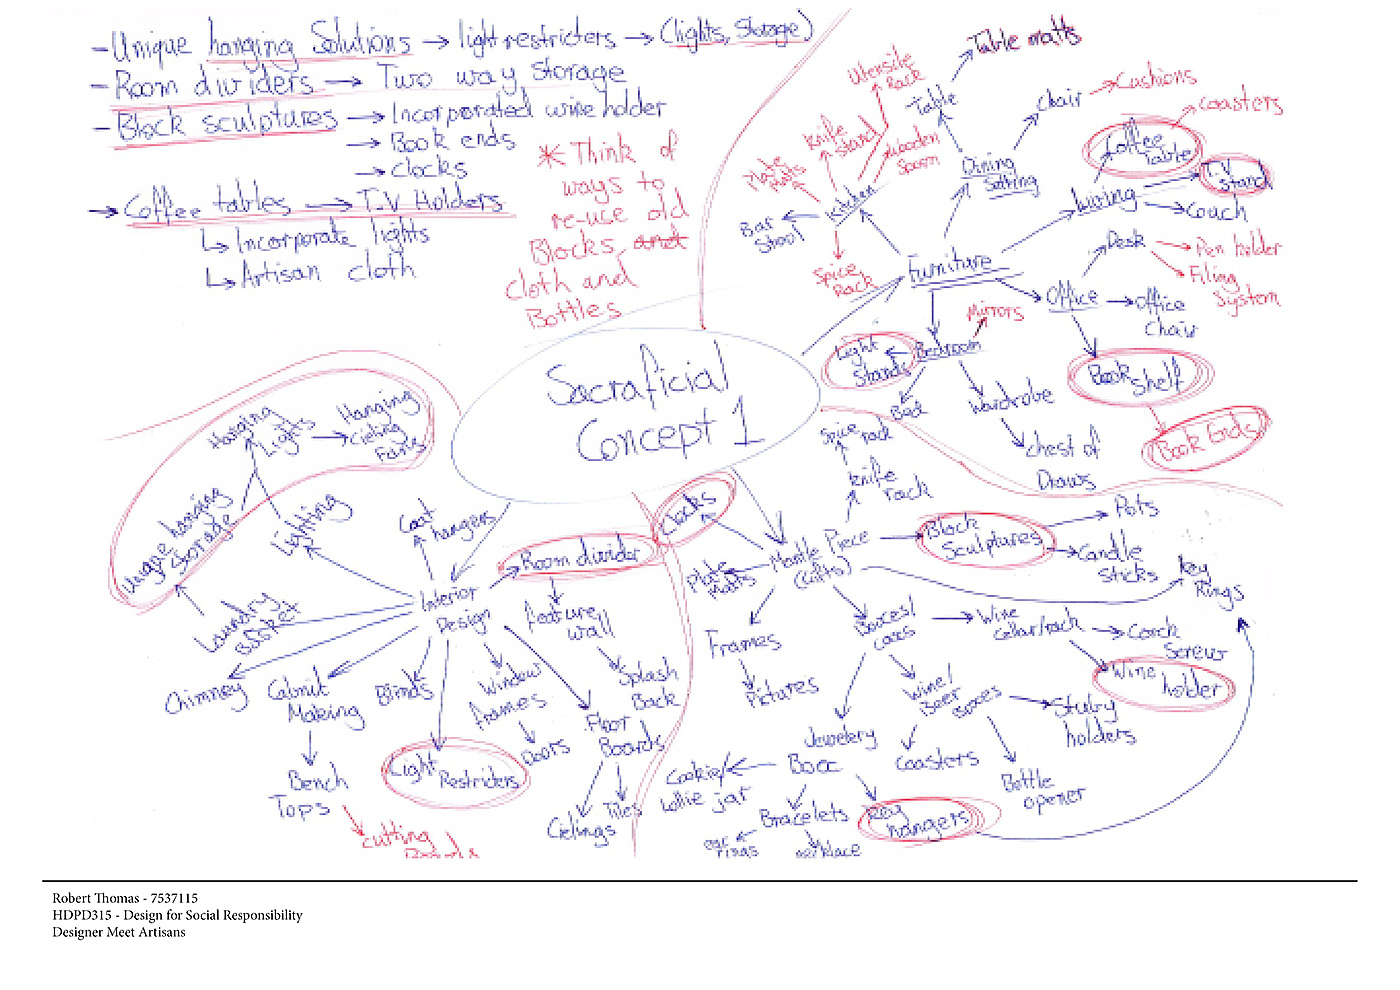 - Unique hanging Solutions → light restricters → (lights, Storage)
- Room dividers → Two way storage
- Block sculptures → Incorporated wine holder
→ Book ends
→ clocks
→ Coffee tables → T.V Holders
↳ Incorporate lights
↳ Artisan cloth
* Think of
ways to
re-use old
Blocks and
cloth and
Bottles
Sacraficial
Concept 1
Furniture
Kitchen
Bar
Stool
Plate
Matts
Knife
Stand
Utensile
Rack
Wooden
Spoon
Spice
Rack
Dining
Setting
Table
Table matts
Chair
Cushions
Living
Coffee
table
Coasters
T.V
Stand
Couch
Office
Desk
Pen holder
Filing
System
Office
Chair
Book
Shelf
Book Ends
Bedroom
Mirrors
Light
Stands
Bed
Wardrobe
chest of
Draws
Mantle Piece
(Gifts)
Clocks
Plate
Matts
Frames
Pictures
knife
rack
Spice rack
Block
Sculptures
Pots
Candle
Sticks
Key
Rings
Boxes/
cases
Wine
Cellar/rack
Corck
Screws
Wine
holder
Wine/
Beer
Boxes
Stuby
holders
Coasters
Bottle
opener
Jewelery
Box
Cookie/
lollie jar
Bracelets
ear
rings
necklace
Key
hangers
Interior
Design
Coat
hangers
Room divider
feature
wall
Splash
Back
Floor
Boards
Tiles
Cielings
Window
frames
Doors
Light
Restriders
Blinds
Cabnit
Making
Bench
Tops
cutting
Boards
Chimney
Laundry
Basket
Unique hanging
Storage
Lighting
Hanging
Lights
Hanging
Cieling
Fans
Robert Thomas - 7537115
HDPD315 - Design for Social Responsibility
Designer Meet Artisans